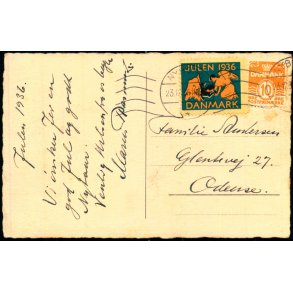 Julen 1936.
Vi ønsker Jer en
god Jul og godt
Nytaar.
Venlig Hilsen fra os
JULEN 1936
DANMARK
DANMARK
10
Familie Andersen
Glentevej 27.
Odense.